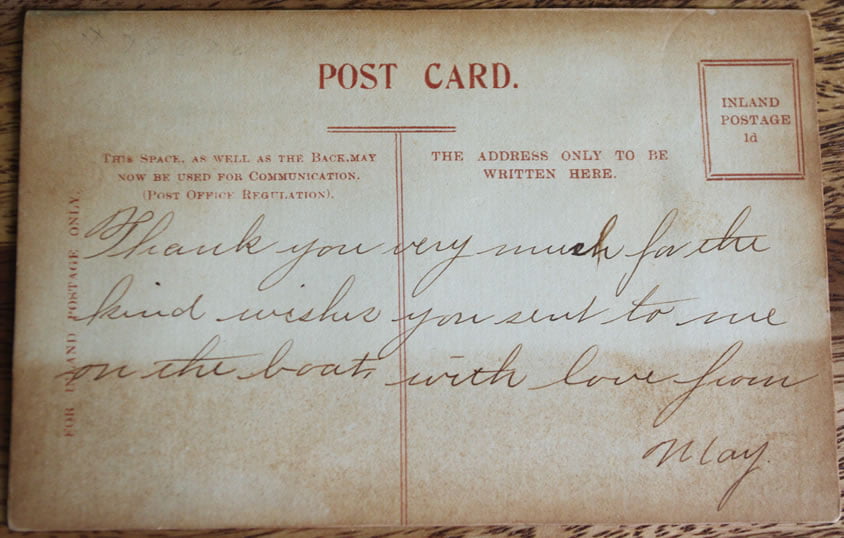 POST CARD.
INLAND
POSTAGE
1d
THIS SPACE, AS WELL AS THE BACK, MAY
NOW BE USED FOR COMMUNICATION.
(POST OFFICE REGULATION).
THE ADDRESS ONLY TO BE
WRITTEN HERE.
FOR INLAND POSTAGE ONLY.
Thank you very much for the
kind wishes you sent to me
on the boat, with love from
May.